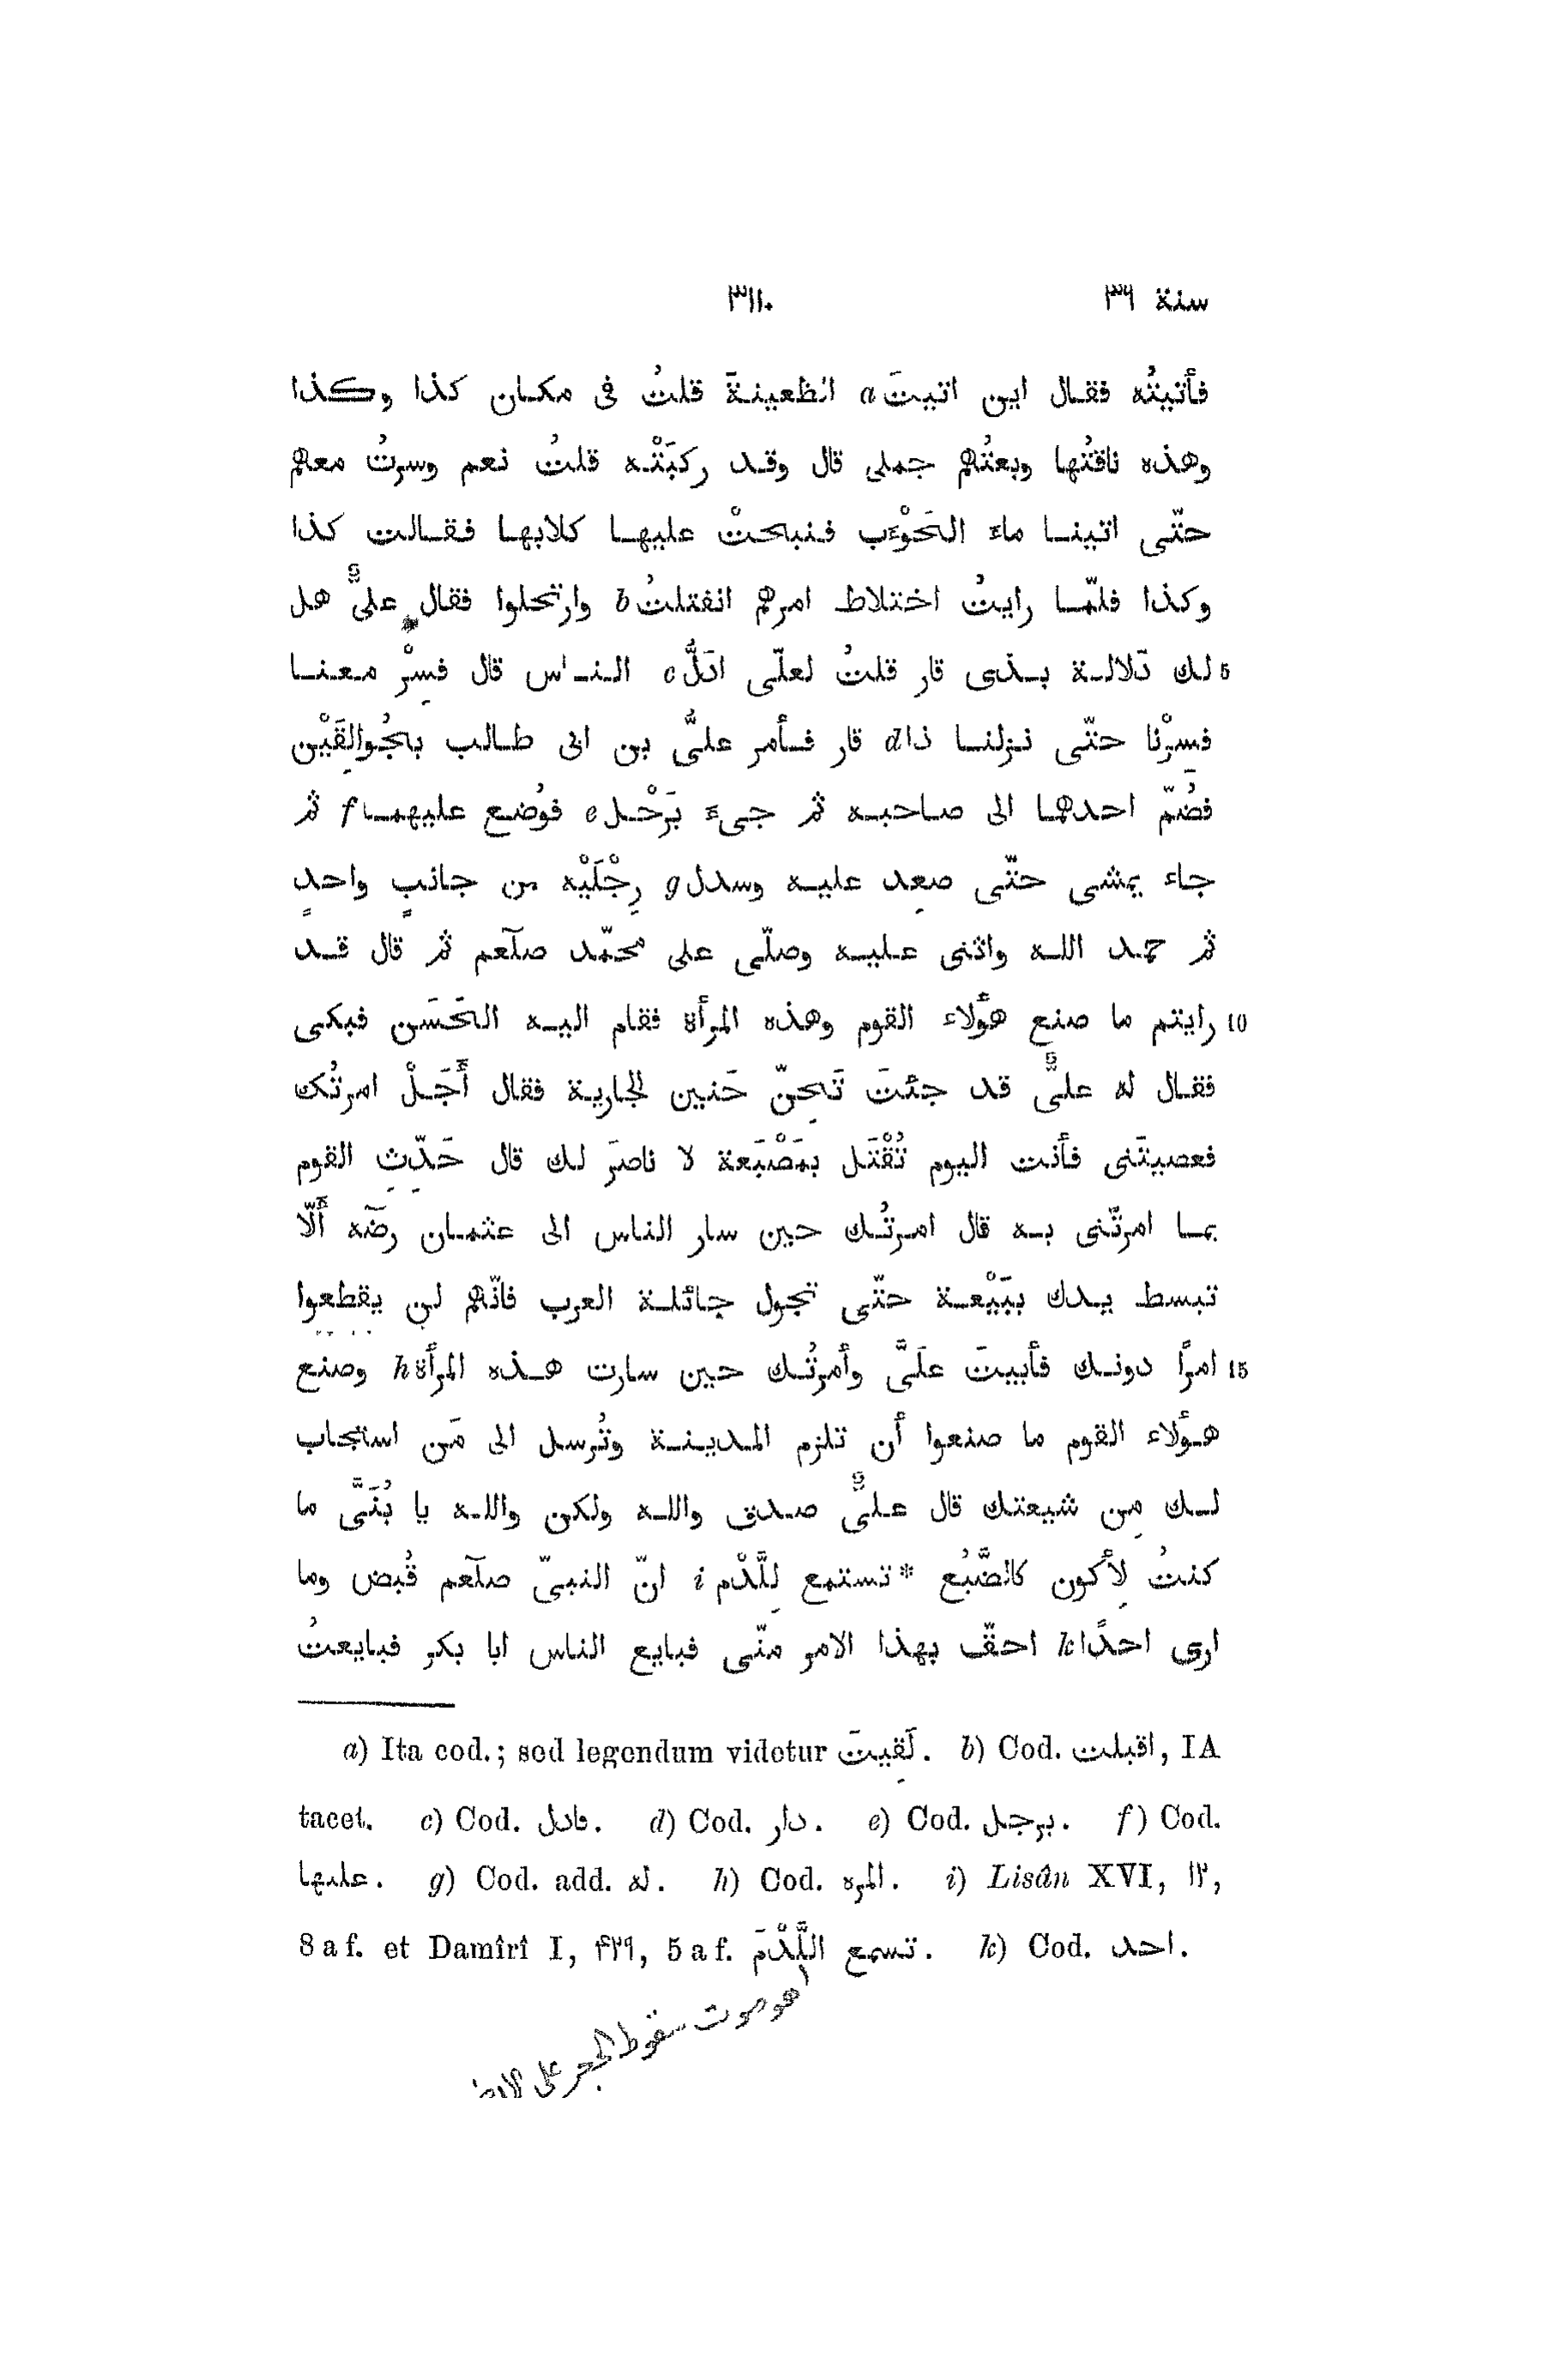 سنة ٣٦ ٣١١٠
فأتيتُه فقال اين اتيتَ a الظعينةَ قلتُ فى مكان كذا وكذا
وهذه ناقتُها وبعتُهم جملى قال وقد ركبَتْه قلتُ نعم وسرتُ معهم
حتّى اتينا ماءَ الحَوْءَب فنبحتْ عليها كلابها فقالت كذا
وكذا فلمّا رايتُ اختلاط امرهم انفتلتُ b وارتحلوا فقال علىٌّ هل
5 لك دَلالة بذى قار قلتُ لعلّى ادَلُّ c الناس قال فسِرْ معنا
فسِرْنا حتّى نزلنا ذا d قار فأمر علىُّ بن ابى طالب بجُوالِقَيْن
فضُمَّ احدهما الى صاحبه ثم جىءَ بَرَحْل e فوُضع عليهما f ثم
جاء يمشى حتّى صعِد عليه وسدل g رِجْلَيْه من جانبٍ واحدٍ
ثم حمد الله واثنى عليه وصلّى على محمّد صلّعم ثم قال قد
10 رايتم ما صنع هؤلاء القوم وهذه المرأة فقام اليه الحَسَن فبكى
فقال له علىٌّ قد جئتَ تَحِنّ حَنين الجارية فقال أَجَلْ امرتُك
فعصيتَنى فأنت اليوم تُقْتَل بمَضْيَعة لا ناصرَ لك قال حَدِّثِ القوم
بما امرتَنى به قال امرتُك حين سار الناس الى عثمان رضّه أَلّا
تبسط يدك ببَيْعة حتّى تجول جائلة العرب فانّهم لن يقطعوا
15 امرًا دونك فأبيتَ علَىَّ وأمرتُك حين سارت هذه المرأة h وصنع
هؤلاء القوم ما صنعوا أن تلزم المدينة وتُرسل الى مَن استجاب
لك مِن شيعتك قال علىٌّ صدق والله ولكن والله يا بُنَىَّ ما
كنتُ لِأكون كالضَّبُع * تستمع لِلَّدْم i انّ النبىّ صلّعم قُبض وما
ارى احدًا k احقّ بهذا الامر منّى فبايع الناس ابا بكر فبايعتُ
a) Ita cod.; sed legendum videtur لَقِيتَ. b) Cod. اقبلت, IA
tacet. c) Cod. فادل. d) Cod. دار. e) Cod. برجل. f) Cod.
عليها. g) Cod. add. له. h) Cod. المره. i) Lisân XVI, ١٢,
8 a f. et Damîrî I, ۴٢٩, 5 a f. تسمع اللَّدْمَ. k) Cod. احد.
هو صوت سقوط الحجر على الارض